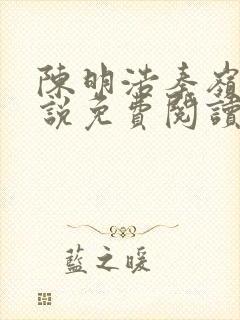 陳明浩秦嶺
說免費閱讀
藍之暖